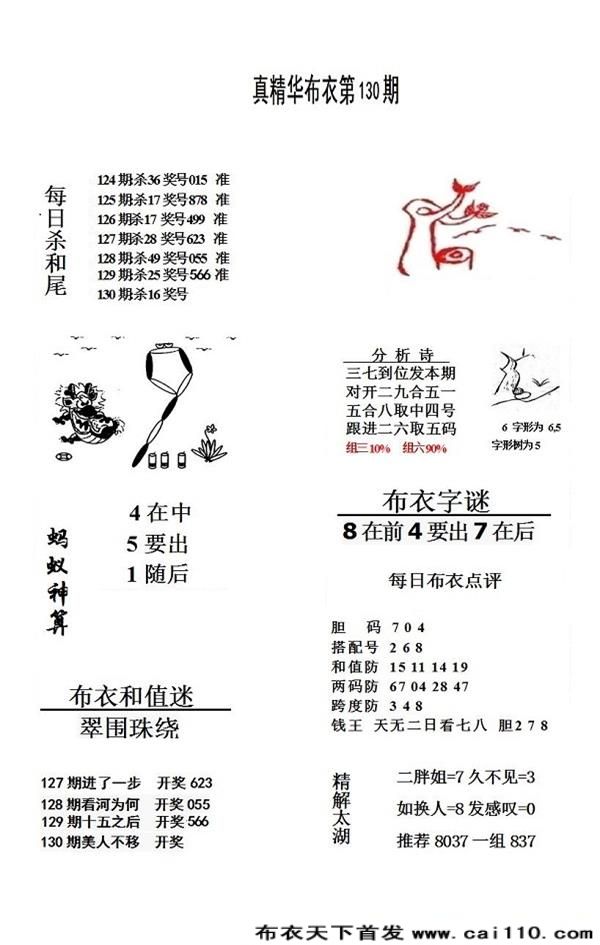 真精华布衣第130期
每日杀和尾
124期:杀36奖号015 准
125期:杀17奖号878 准
126期:杀17奖号499 准
127期:杀28 奖号623 准
128期:杀49 奖号055 准
129期:杀25 奖号566 准
130期:杀16奖号
分析诗
三七到位发本期
对开二九合五一
五合八取中四号
跟进二六取五码
组三10% 组六90%
6 字形为 6,5
字形树为5
蚂蚁神算
4在中
5要出
1随后
布衣字谜
8在前4要出7在后
每日布衣点评
胆 码 7 0 4
搭配号 2 6 8
和值防 15 11 14 19
两码防 67 04 28 47
跨度防 3 4 8
钱王 天无二日看七八 胆2 7 8
布衣和值迷
翠围珠绕
127期进了一步 开奖623
128期看河为何 开奖055
129期十五之后 开奖566
130期美人不移 开奖
精解太湖
二胖姐=7久不见=3
如换人=8发感叹=0
推荐8037一组837
布衣天下首发 www.cai110.com